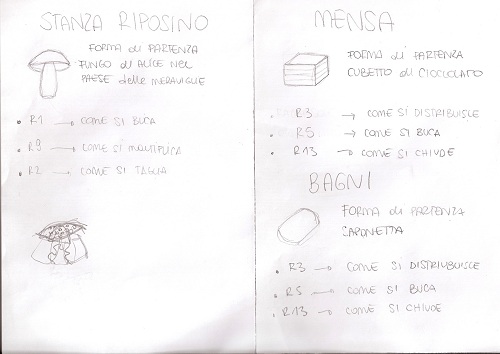 STANZA RIPOSINO
FORMA di PARTENZA
FUNGO di ALICE NEL
PAESE delle MERAVIGLIE
. R1 → COME SI BUCA
. R9 → COME SI MOLTIPLICA
. R2 → COME SI TAGLIA
MENSA
FORMA di PARTENZA
CUBETTO di CIOCCOLATO
. R3 → COME SI DISTRIBUISCE
. R5 → COME SI BUCA
. R13 → COME SI CHIUDE
BAGNI
FORMA di PARTENZA
SAPONETTA
. R3 → COME SI DISTRIUBUISCE
. R5 → COME SI BUCA
. R13 → COME SI CHIUDE